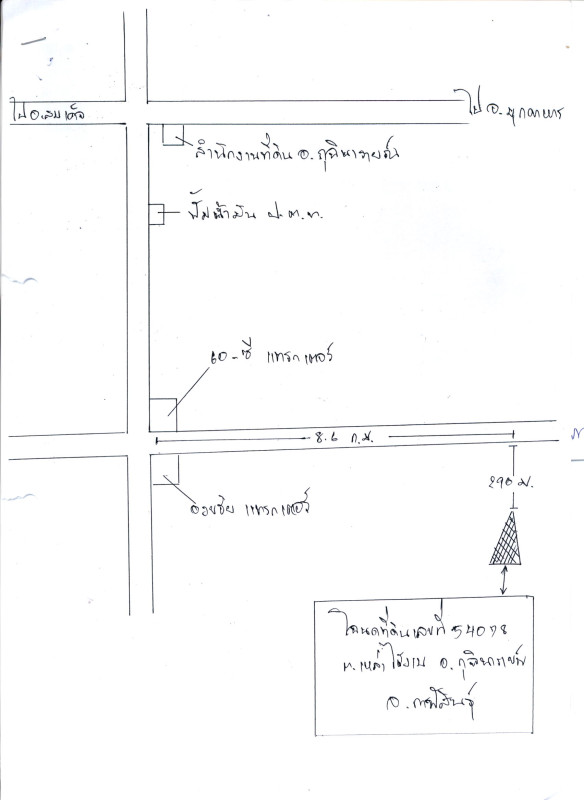 ไป อ.สมเด็จ
ไป จ.มุกดาหาร
สำนักงานที่ดิน อ.กุฉินารายณ์
ปั้มน้ำมัน ป.ต.ท.
เอ-ซี แทรกเตอร์
8.6 ก.ม.
290 ม.
อวยชัย แทรกเตอร์
โฉนดที่ดินเลขที่ 54078
ต.เหล่าใหญ่ อ.กุฉินารายณ์
จ.กาฬสินธุ์